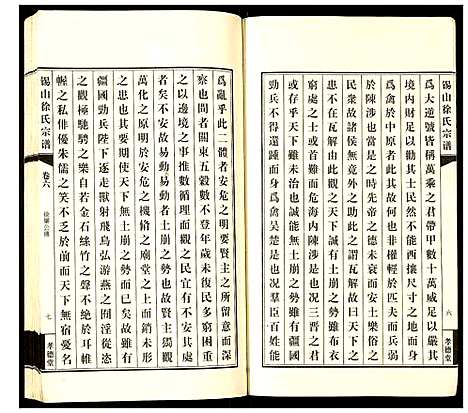 錫山徐氏宗譜
六
孝德堂
爲大逆號皆稱萬乘之君帶甲數十萬威足以嚴其
境內財足以勸其士民此不能西攘尺寸之地而身
爲禽於中原者此其故何也非權輕於匹夫而兵弱
於陳涉也當是之時先帝之德未衰而安土樂俗之
民衆故諸侯無境外之助此之謂瓦解故曰天下之
患不在瓦解由此觀之天下誠有土崩之勢雖布衣
窮處之士或首難而危海內陳涉是也況三晉之君
或存乎天下雖未治也誠能無土崩之勢雖有彊國
勁兵不得還踵而身爲禽吳楚是也況羣臣百姓能
爲亂乎此二體者安危之明要賢主之所留意而深
察也間者關東五穀數不登年歲未復民多窮困重
之以邊境之事推數循理而觀之民宜有不安其處
者矣不安故易動易動者土崩之勢也故賢主獨觀
萬化之原明於安危之機脩之廟堂之上而銷未形
之患也其要期使天下無土崩之勢而已矣故雖有
彊國勁兵陛下逐走獸射飛鳥弘游燕之囿淫從恣
之觀極馳騁之樂自若金石絲竹之聲不絕於耳帷
幄之私俳優朱儒之笑不乏於前而天下無宿憂名
錫山徐氏宗譜
卷六
七
孝德堂